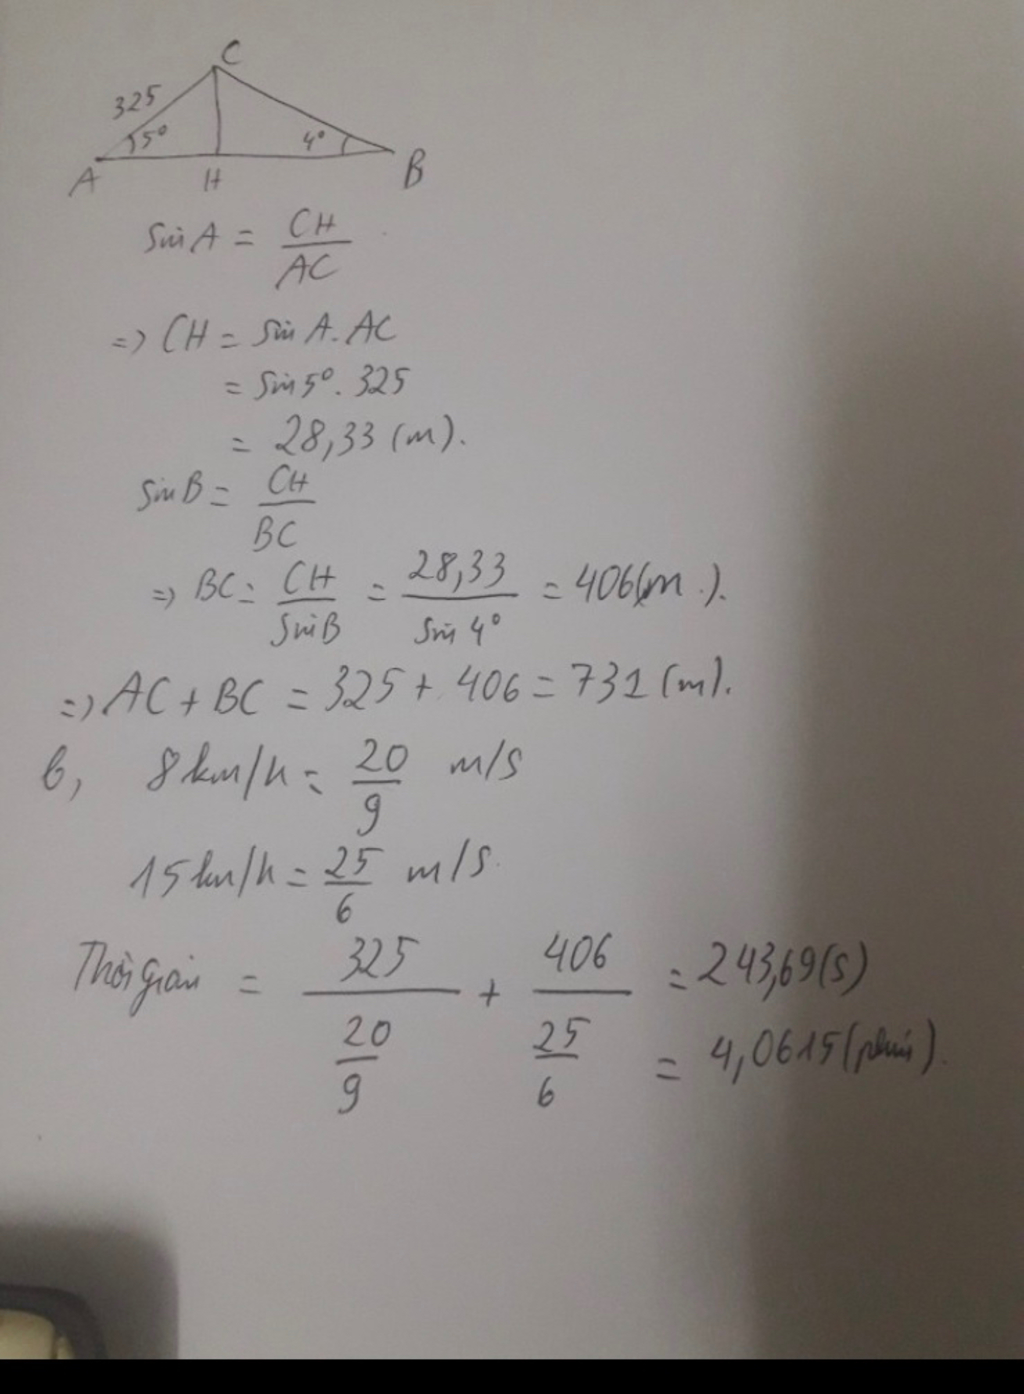 C
325
5° 4°
A H B
Sin A = CH/AC
=> CH = Sin A. AC
= Sin 5°. 325
= 28,33 (m).
Sin B = CH/BC
=> BC = CH/Sin B = 28,33/Sin 4° = 406(m).
=> AC + BC = 325 + 406 = 731 (m).
b, 8km/h = 20/9 m/s
15km/h = 25/6 m/s.
Thời gian = 325/(20/9) + 406/(25/6) = 243,69(s)
= 4,0615(phút).